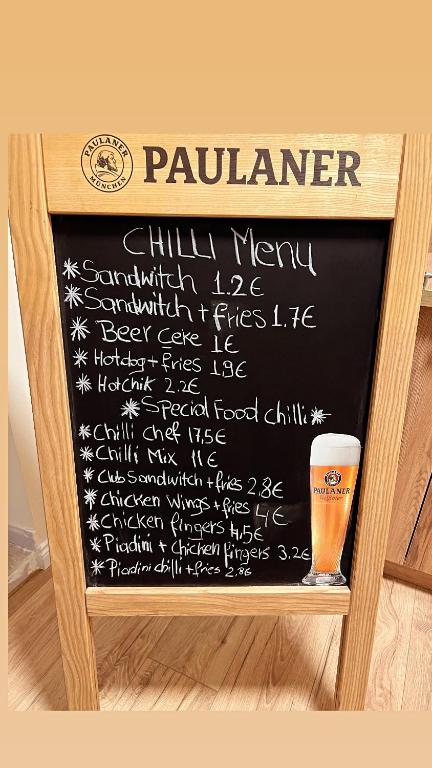 PAULANER
MÜNCHEN
PAULANER
CHILLI Menu
* Sandwitch 1.2€
* Sandwitch + fries 1.7€
* Beer ceke 1€
* Hotdog + fries 1.9€
* Hotchik 2.2€
* Special Food chilli *
* Chilli chef 17,5€
* Chilli Mix 11€
* Club Sandwitch + fries 2.8€
* Chicken Wings + fries 4€
* Chicken fingers 4,5€
* Piadini + chicken fingers 3.2€
* Piadini chilli + fries 2.8€
PAULANER